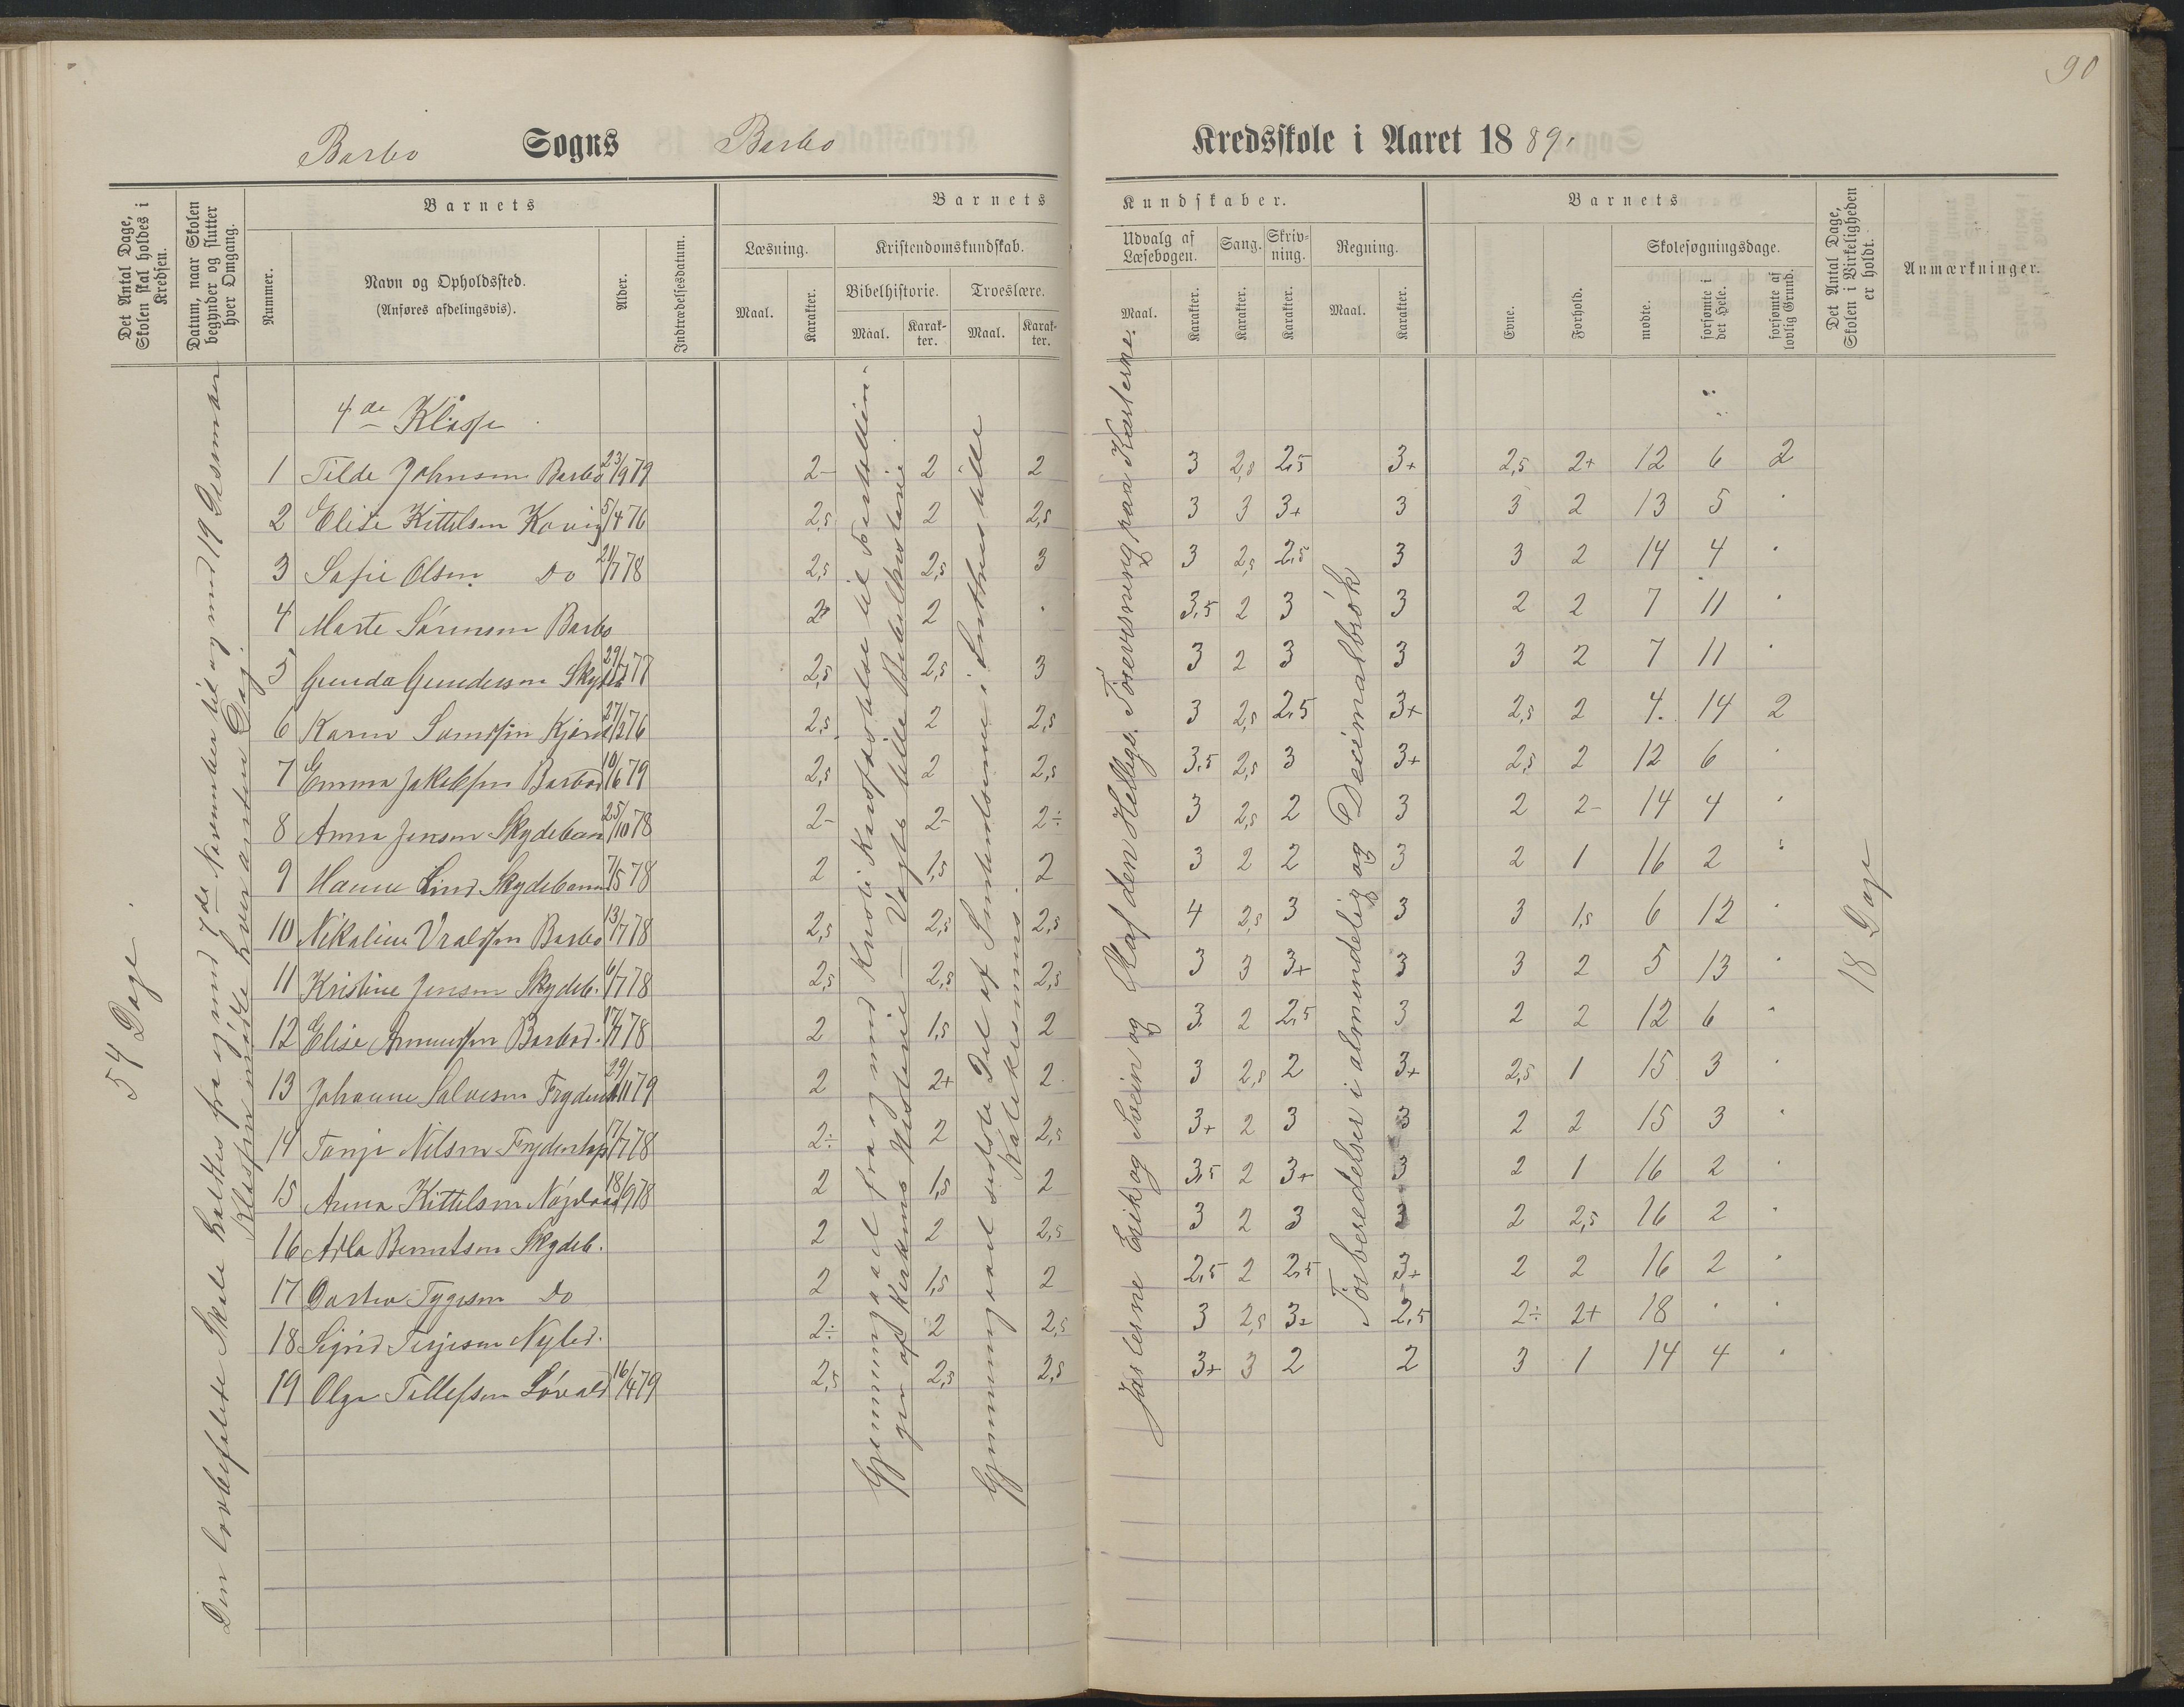 90
Barbo Sogns Barbo Kredsskole i Aaret 1889.
Det Antal Dage, Skolen skal holdes i Kredsen.
Datum, naar Skolen begynder og slutter hver Omgang.
Barnets
Nummer.
Navn og Opholdssted.
(Anføres afdelingsvis).
Alder.
Indtrædelsesdatum.
Barnets Kundskaber.
Læsning.
Maal.
Karakter.
Kristendomskundskab.
Bibelhistorie.
Maal.
Karakter.
Troeslære.
Maal.
Karakter.
Udvalg af Læsebogen.
Maal.
Karakter.
Sang.
Karakter.
Skrivning.
Karakter.
Regning.
Maal.
Karakter.
Barnets
Evne.
Forhold.
Skolesøgningsdage.
mødte.
forsømte i det Hele.
forsømte af lovlig Grund.
Det Antal Dage, Skolen i Virkeligheden er holdt.
Anmærkninger.
54 Dage.
Den lovbefalede Skole holdtes fra og med 7de November til og med 19 Desember
Klassen mødte hver anden Dag.
4de Klasse
1 Tilde Johnsen Barbo 23/9 79 2- 2 2 3 2,5 2,5 3+ 2,5 2+ 12 6 2
2 Elise Kittelsen Kovig 5/4 76 2,5 2 2,5 3 3 3+ 3 3 2 13 5 .
3 Sofie Olsen Do 21/7 78 2,5 2,5 3 3 2,5 2,5 3 3 2 14 4 .
4 Marte Sørensen Barbo 2+ 2 . 3,5 2 3 3 2 2 7 11 .
5 Gunda Gundersen 77 2,5 2,5 3 3 2 3 3 3 2 7 11 .
6 Karen 27/2 76 2,5 2 2,5 3 2,5 2,5 3+ 2,5 2 4. 14 2
7 Emma Jakobsen Barbod 10/6 79 2,5 2 2,5 3,5 2,5 3 3+ 2,5 2 12 6 .
8 Anna Jensen Skydeban 25/10 78 2- 2- 2÷ 3 2,5 2 3 2 2- 14 4 .
9 Hanne Lind Skydebann 7/5 78 2 1,5 2 3 2 2 3 2 1 16 2 .
10 Nikoline Vralssen Barbo 13/7 78 2,5 2,5 2,5 4 2,5 3 3 3 1,5 6 12 .
11 Kristine Jensen Skydeb. 6/7 78 2,5 2,5 2,5 3 3 3+ 3 3 2 5 13 .
12 Elise Barbod. 78 2 1,5 2 3 2 2,5 3 2 2 12 6 .
13 Johanne Salvesen 29/11 79 2 2+ 2 3 2,5 2 3+ 2,5 1 15 3 .
14 Tonje Nilsen 17/7 78 2÷ 2 2,5 3+ 2 3 3 2 2 15 3 .
15 Anna Kittelsen 18/9 78 2 1,5 2 3,5 2 3+ 3 2 1 16 2 .
16 Berntsen Skydeb. 2 2 2,5 3 2 3 3 2 2,5 16 2 .
17 Dorthea Tygesen Do 2 1,5 2 2,5 2 2,5 3+ 2 2 16 2 .
18 Sigrid Terjesen Nyled. 2÷ 2 2,5 3 2,5 3+ 2,5 2÷ 2+ 18 . .
19 Olga Tellefsen 16/4 79 2,5 2,5 2,5 3+ 3 2 2 3 1 14 4 .
Gjennemgaaet fra og med Knud til Fortællin-
gen af Kirkens Historie – Vogts lille Bibelhistorie
Gjennemgaaet sidste Del af i Luthers lille
Katekismus.
Jarlerne Erik og Svein og Olaf den Hellige. Foreviisning paa Karterne.
Forberedelser i almindelig og Decimalbrøk
18 Dage